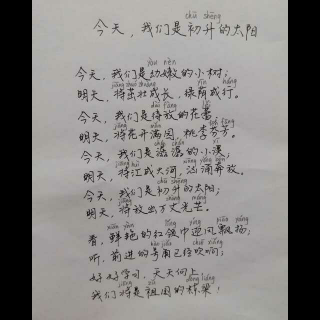 今天，我们是初升的太阳
今天，我们是幼嫩的小树；
明天，将茁壮成长，绿荫成行。
今天，我们是待放的花蕾
明天，将花开满园，桃李芬芳。
今天，我们是潺潺的小溪；
明天，将汇成大河，汹涌奔放。
今天，我们是初升的太阳；
明天，将放出万丈光芒。
看，鲜艳的红领巾迎风飘扬；
听，前进的号角已经吹响；
好好学习，天天向上
我们将是祖国的栋梁！